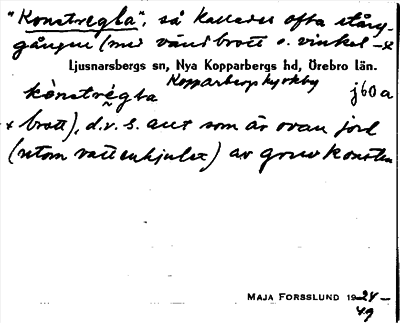 "Konstregla", så kallades ofta stång-
gången (med vändbrott o. vinkel-
Ljusnarsbergs sn, Nya Kopparbergs hd, Örebro län.
Kopparbergs kyrkby
kònstrégla j60a
+ brott), d.v.s. allt som är ovan jord
(utom vattenhjulet) av gruvkonsten
MAJA FORSSLUND 1924-
49